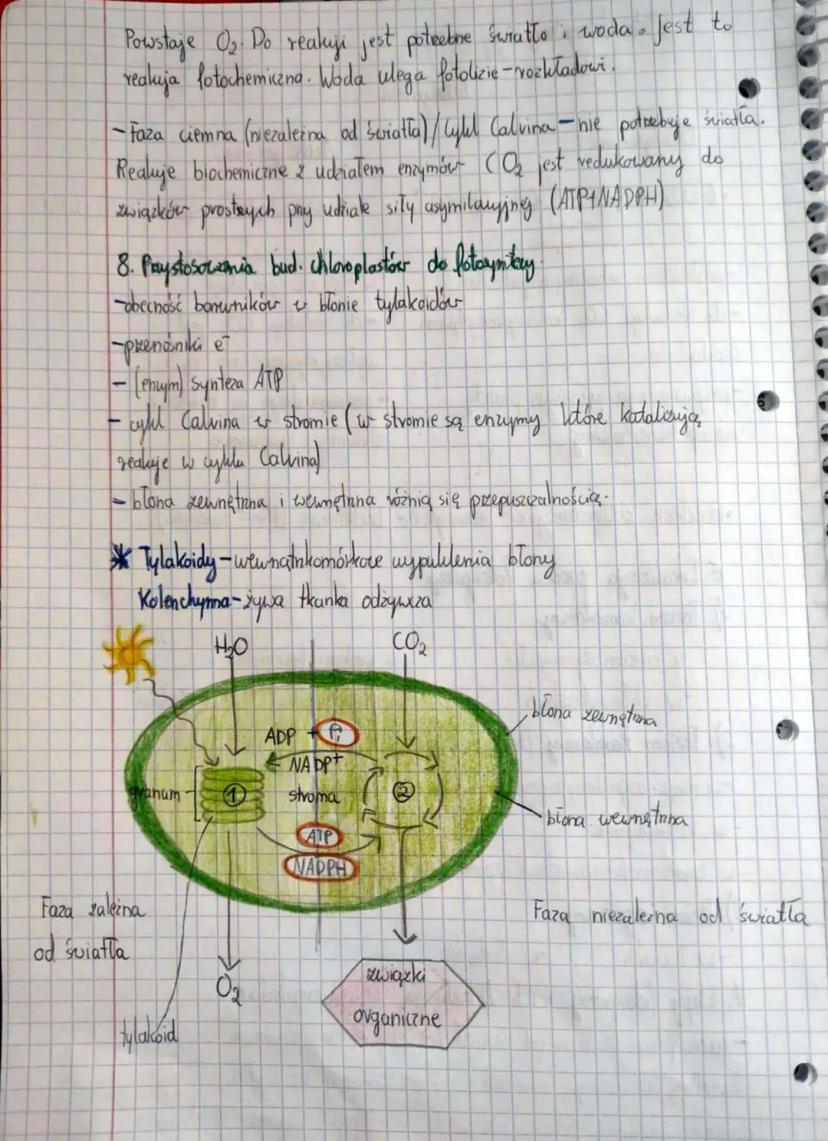 Powstaje O₂. Do reakcji jest potrzebne światło i woda. Jest to
reakcja fotochemiczna. Woda ulega fotolizie-rozkładowi.
- Faza ciemna (niezależna od światła)/Cykl Calvina-nie potrzebuje światła.
Reakcje biochemiczne z udziałem enzymów CO₂ jest redukowany do
związków prostszych przy udziale siły asymilacyjnej (ATP+NADPH)
8. Przystosowania bud. chloroplastów do fotosyntezy
-obecność barwników w błonie tylakoidów
-przenośniki e⁻
- (enzym) synteza ATP
- cykl Calvina w stromie (w stromie są enzymy które katalizują
reakcje w cyklu Calvina)
- błona zewnętrzna i wewnętrzna różnią się przepuszczalnością.
* Tylakoidy-wewnątrzkomórkowe wypuklenia błony
Kolenchyma-żywa tkanka odżywcza
H₂O
CO₂
błona zewnętrzna
ADP + Pi
NADP+
granum
1
stroma
2
błona wewnętrzna
ATP
NADPH
Faza zależna
od światła
Faza niezależna od światła
O₂
związki
organiczne
tylakoid